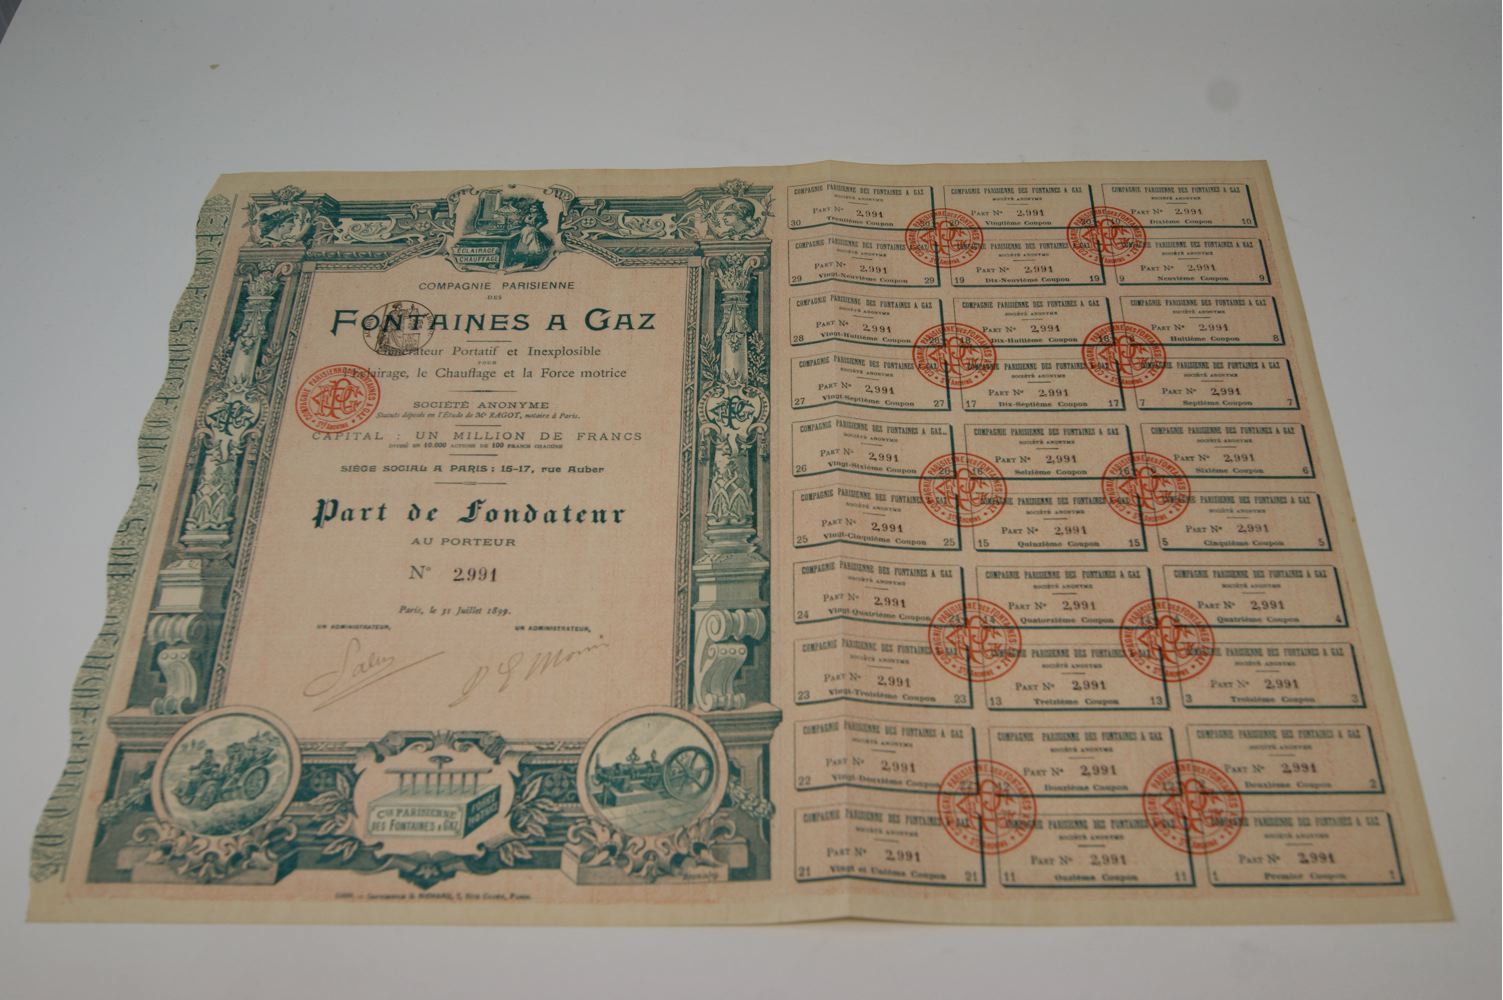 ÉCLAIRAGE
CHAUFFAGE
COMPAGNIE PARISIENNE
DES
FONTAINES A GAZ
Portatif et Inexplosible
POUR
l'Éclairage, le Chauffage et la Force motrice
SOCIÉTÉ ANONYME
Statuts déposés en l'Étude de Me RAGOT, notaire à Paris.
CAPITAL : UN MILLION DE FRANCS
DIVISÉ EN 10.000 ACTIONS DE 100 FRANCS CHACUNE
SIÈGE SOCIAL A PARIS : 15-17, rue Auber
Part de Fondateur
AU PORTEUR
N° 2,991
Paris, le 31 Juillet 1899.
UN ADMINISTRATEUR, UN ADMINISTRATEUR,
Cie PARISIENNE
DES FONTAINES A GAZ
COMPAGNIE PARISIENNE DES FONTAINES A GAZ
Sté ANONYME
COMPAGNIE PARISIENNE DES FONTAINES A GAZ
SOCIÉTÉ ANONYME
PART N° 2,991
30 Trentième Coupon 30
COMPAGNIE PARISIENNE DES FONTAINES A GAZ
SOCIÉTÉ ANONYME
PART N° 2,991
20 Vingtième Coupon 20
COMPAGNIE PARISIENNE DES FONTAINES A GAZ
SOCIÉTÉ ANONYME
PART N° 2,991
10 Dixième Coupon 10
COMPAGNIE PARISIENNE DES FONTAINES A GAZ
SOCIÉTÉ ANONYME
PART N° 2,991
29 Vingt-Neuvième Coupon 29
COMPAGNIE PARISIENNE DES FONTAINES A GAZ
SOCIÉTÉ ANONYME
PART N° 2,991
19 Dix-Neuvième Coupon 19
COMPAGNIE PARISIENNE DES FONTAINES A GAZ
SOCIÉTÉ ANONYME
PART N° 2,991
9 Neuvième Coupon 9
COMPAGNIE PARISIENNE DES FONTAINES A GAZ
SOCIÉTÉ ANONYME
PART N° 2,991
28 Vingt-Huitième Coupon 28
COMPAGNIE PARISIENNE DES FONTAINES A GAZ
SOCIÉTÉ ANONYME
PART N° 2,991
18 Dix-Huitième Coupon 18
COMPAGNIE PARISIENNE DES FONTAINES A GAZ
SOCIÉTÉ ANONYME
PART N° 2,991
Huitième Coupon 8
COMPAGNIE PARISIENNE DES FONTAINES A GAZ
SOCIÉTÉ ANONYME
PART N° 2,991
27 Vingt-Septième Coupon 27
COMPAGNIE PARISIENNE DES FONTAINES A GAZ
SOCIÉTÉ ANONYME
PART N° 2,991
17 Dix-Septième Coupon 17
COMPAGNIE PARISIENNE DES FONTAINES A GAZ
SOCIÉTÉ ANONYME
PART N° 2,991
7 Septième Coupon 7
COMPAGNIE PARISIENNE DES FONTAINES A GAZ
SOCIÉTÉ ANONYME
PART N° 2,991
26 Vingt-Sixième Coupon 26
COMPAGNIE PARISIENNE DES FONTAINES A GAZ
SOCIÉTÉ ANONYME
PART N° 2,991
16 Seizième Coupon 16
COMPAGNIE PARISIENNE DES FONTAINES A GAZ
SOCIÉTÉ ANONYME
PART N° 2,991
6 Sixième Coupon 6
COMPAGNIE PARISIENNE DES FONTAINES A GAZ
SOCIÉTÉ ANONYME
PART N° 2,991
25 Vingt-Cinquième Coupon 25
COMPAGNIE PARISIENNE DES FONTAINES A GAZ
SOCIÉTÉ ANONYME
PART N° 2,991
15 Quinzième Coupon 15
COMPAGNIE PARISIENNE DES FONTAINES A GAZ
SOCIÉTÉ ANONYME
PART N° 2,991
5 Cinquième Coupon 5
COMPAGNIE PARISIENNE DES FONTAINES A GAZ
SOCIÉTÉ ANONYME
PART N° 2,991
24 Vingt-Quatrième Coupon 24
COMPAGNIE PARISIENNE DES FONTAINES A GAZ
SOCIÉTÉ ANONYME
PART N° 2,991
14 Quatorzième Coupon 14
COMPAGNIE PARISIENNE DES FONTAINES A GAZ
SOCIÉTÉ ANONYME
PART N° 2,991
4 Quatrième Coupon 4
COMPAGNIE PARISIENNE DES FONTAINES A GAZ
SOCIÉTÉ ANONYME
PART N° 2,991
23 Vingt-Troisième Coupon 23
COMPAGNIE PARISIENNE DES FONTAINES A GAZ
SOCIÉTÉ ANONYME
PART N° 2,991
13 Treizième Coupon 13
COMPAGNIE PARISIENNE DES FONTAINES A GAZ
SOCIÉTÉ ANONYME
PART N° 2,991
3 Troisième Coupon 3
COMPAGNIE PARISIENNE DES FONTAINES A GAZ
SOCIÉTÉ ANONYME
PART N° 2,991
22 Vingt-Deuxième Coupon 22
COMPAGNIE PARISIENNE DES FONTAINES A GAZ
SOCIÉTÉ ANONYME
PART N° 2,991
12 Douzième Coupon 12
COMPAGNIE PARISIENNE DES FONTAINES A GAZ
SOCIÉTÉ ANONYME
PART N° 2,991
Deuxième Coupon 2
COMPAGNIE PARISIENNE DES FONTAINES A GAZ
SOCIÉTÉ ANONYME
PART N° 2,991
21 Vingt et Unième Coupon 21
COMPAGNIE PARISIENNE DES FONTAINES A GAZ
SOCIÉTÉ ANONYME
PART N° 2,991
11 Onzième Coupon 11
COMPAGNIE PARISIENNE DES FONTAINES A GAZ
SOCIÉTÉ ANONYME
PART N° 2,991
1 Premier Coupon 1